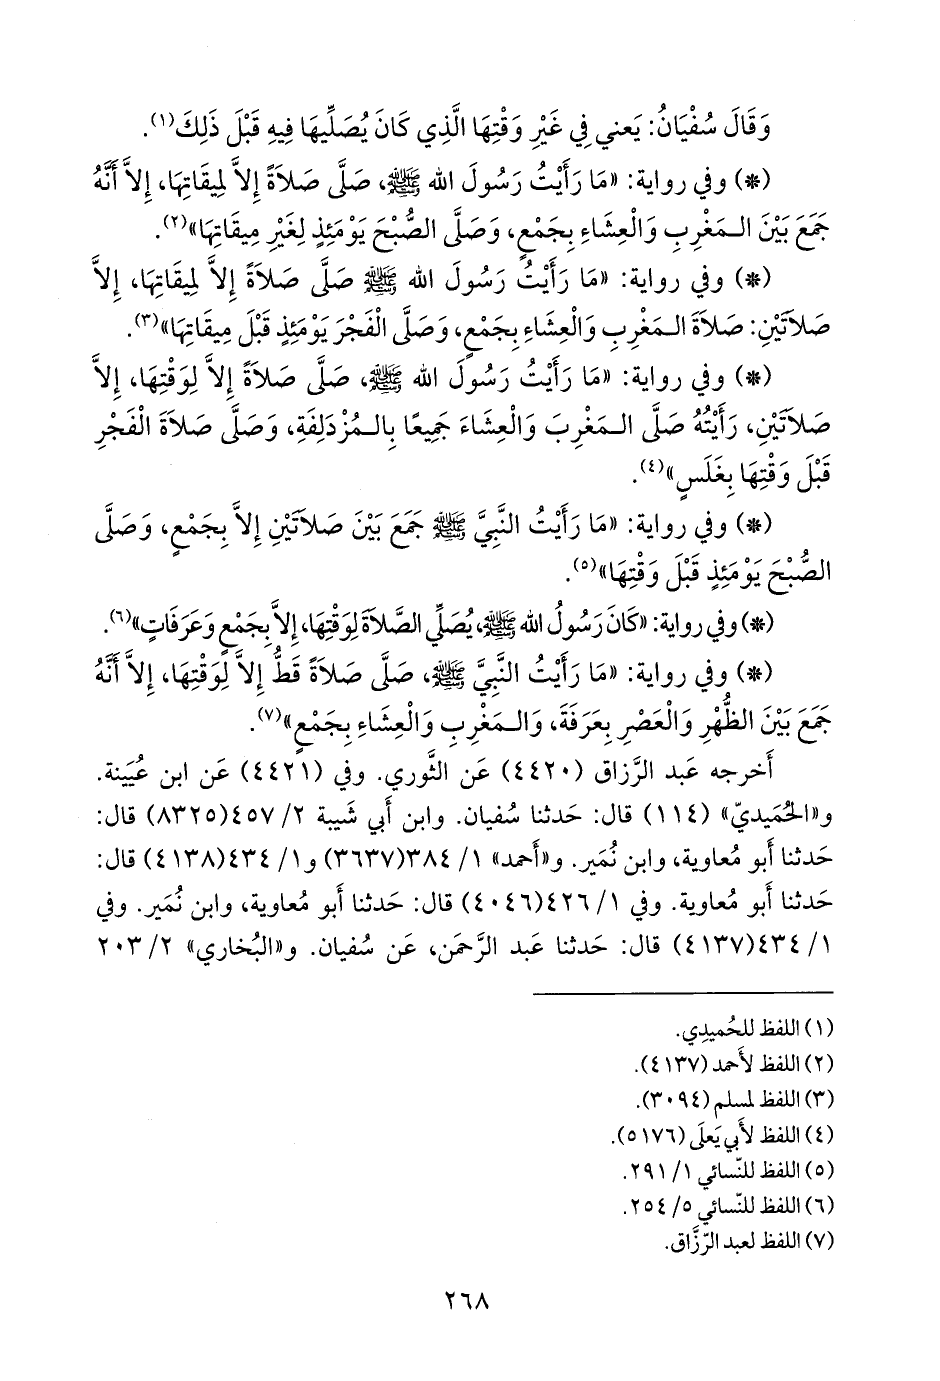 وَقَالَ سُفْيَانُ: يَعني فِي غَيْرِ وَقْتِهَا الَّذِي كَانَ يُصَلِّيهَا فِيهِ قَبْلَ ذَلِكَ(١).
(*) وفي رواية: «مَا رَأَيْتُ رَسُولَ الله ﷺ، صَلَّى صَلاَةً إِلاَّ لِمِيقَاتِهَا، إِلاَّ أَنَّهُ
جَمَعَ بَيْنَ الـمَغْرِبِ وَالْعِشَاءِ بِجَمْعٍ، وَصَلَّى الصُّبْحَ يَوْمَئِذٍ لِغَيْرِ مِيقَاتِهَا»(٢).
(*) وفي رواية: «مَا رَأَيْتُ رَسُولَ الله ﷺ صَلَّى صَلاَةً إِلاَّ لِمِيقَاتِهَا، إِلاَّ
صَلاَتَيْنِ: صَلاَةَ الـمَغْرِبِ وَالْعِشَاءِ بِجَمْعٍ، وَصَلَّى الْفَجْرَ يَوْمَئِذٍ قَبْلَ مِيقَاتِهَا»(٣).
(*) وفي رواية: «مَا رَأَيْتُ رَسُولَ الله ﷺ، صَلَّى صَلاَةً إِلاَّ لِوَقْتِهَا، إِلاَّ
صَلاَتَيْنِ، رَأَيْتُهُ صَلَّى الـمَغْرِبَ وَالْعِشَاءَ جَمِيعًا بِالـمُزْدَلِفَةِ، وَصَلَّى صَلاَةَ الْفَجْرِ
قَبْلَ وَقْتِهَا بِغَلَسٍ»(٤).
(*) وفي رواية: «مَا رَأَيْتُ النَّبِيَّ ﷺ جَمَعَ بَيْنَ صَلاَتَيْنِ إِلاَّ بِجَمْعٍ، وَصَلَّى
الصُّبْحَ يَوْمَئِذٍ قَبْلَ وَقْتِهَا»(٥).
(*) وفي رواية: «كَانَ رَسُولُ الله ﷺ، يُصَلِّي الصَّلاَةَ لِوَقْتِهَا، إِلاَّ بِجَمْعٍ وَعَرَفَاتٍ»(٦).
(*) وفي رواية: «مَا رَأَيْتُ النَّبِيَّ ﷺ، صَلَّى صَلاَةً قَطُّ إِلاَّ لِوَقْتِهَا، إِلاَّ أَنَّهُ
جَمَعَ بَيْنَ الظُّهْرِ وَالْعَصْرِ بِعَرَفَةَ، وَالـمَغْرِبِ وَالْعِشَاءِ بِجَمْعٍ»(٧).
أَخرجه عَبد الرَّزاق (٤٤٢٠) عَن الثَّوري. وفي (٤٤٢١) عَن ابن عُيَينة.
و«الحُمَيديّ» (١١٤) قال: حَدثنا سُفيان. وابن أَبي شَيبة ٢/ ٤٥٧(٨٣٢٥) قال:
حَدثنا أَبو مُعاوية، وابن نُمَير. و«أَحمد» ١/ ٣٨٤(٣٦٣٧) و١/ ٤٣٤(٤١٣٨) قال:
حَدثنا أَبو مُعاوية. وفي ١/ ٤٢٦(٤٠٤٦) قال: حَدثنا أَبو مُعاوية، وابن نُمَير. وفي
١/ ٤٣٤(٤١٣٧) قال: حَدثنا عَبد الرَّحمَن، عَن سُفيان. و«البُخاري» ٢/ ٢٠٣
(١) اللفظ للحُميدِي.
(٢) اللفظ لأَحمد (٤١٣٧).
(٣) اللفظ لمسلم (٣٠٩٤).
(٤) اللفظ لأَبي يَعلَى (٥١٧٦).
(٥) اللفظ للنَّسائي ١/ ٢٩١.
(٦) اللفظ للنَّسائي ٥/ ٢٥٤.
(٧) اللفظ لعبد الرَّزَّاق.
٢٦٨